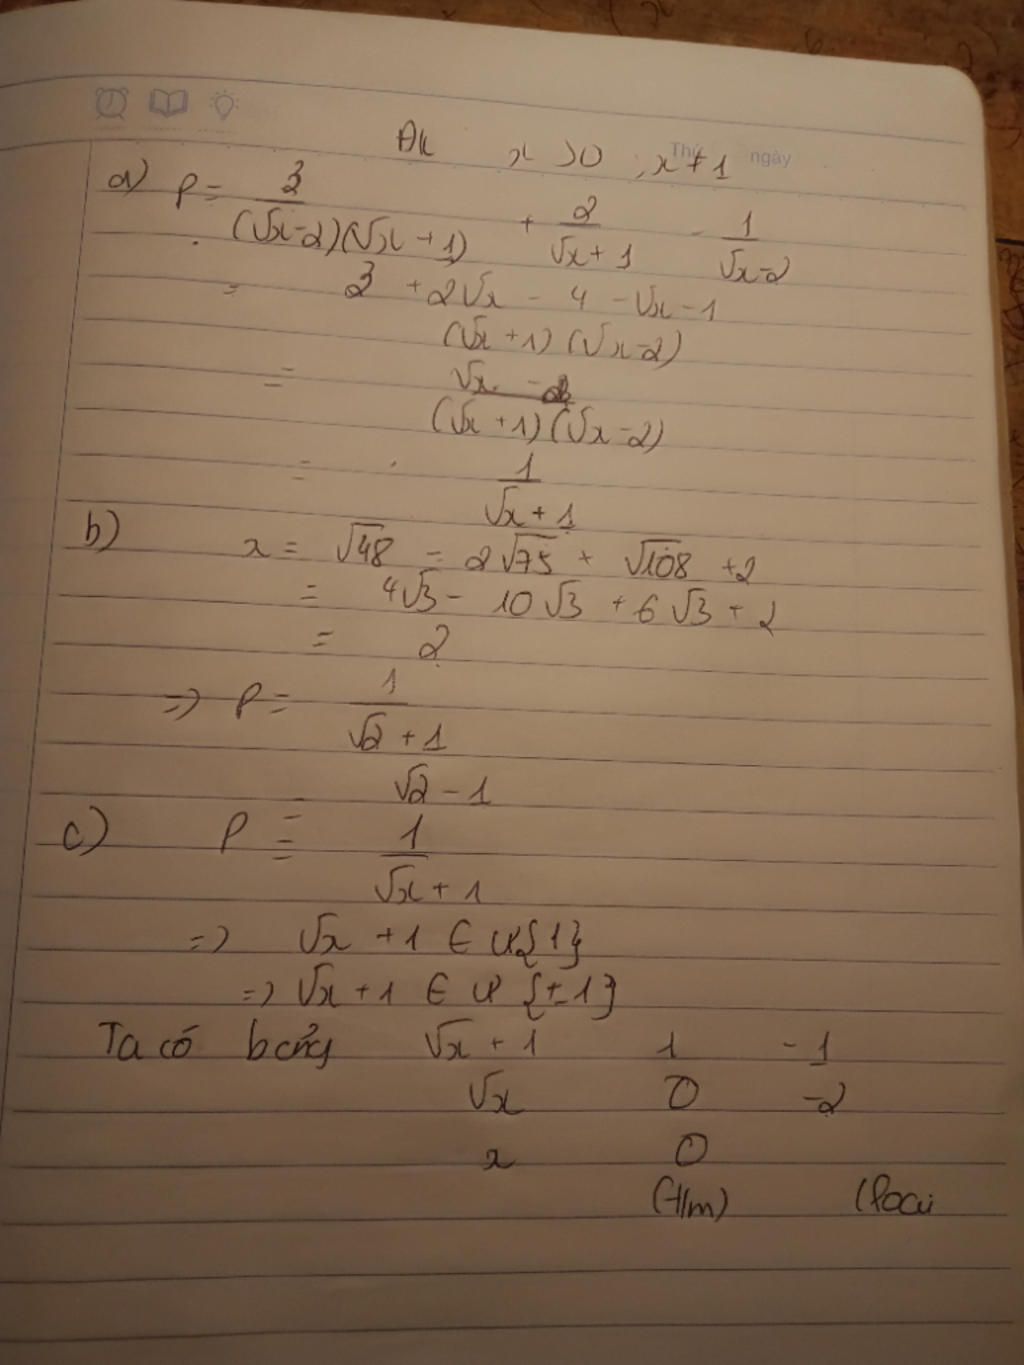 Đk x >0 ; x ≠ 1
Thứ ngày
a) P = 3/((√x-2)(√x+1)) + 2/(√x+1) - 1/(√x-2)
= (3 + 2√x - 4 - √x - 1)/((√x+1)(√x-2))
= (√x - 2)/((√x+1)(√x-2))
= 1/(√x+1)
b) x = √48 - 2√75 + √108 + 2
= 4√3 - 10√3 + 6√3 + 2
= 2
=> P = 1/(√2+1)
= √2 - 1
c) P = 1/(√x+1)
=> √x + 1 ∈ Ư{1}
=> √x + 1 ∈ Ư {±1}
Ta có bảng √x + 1 1 -1
√x 0 -2
x 0
(t/m) (loại